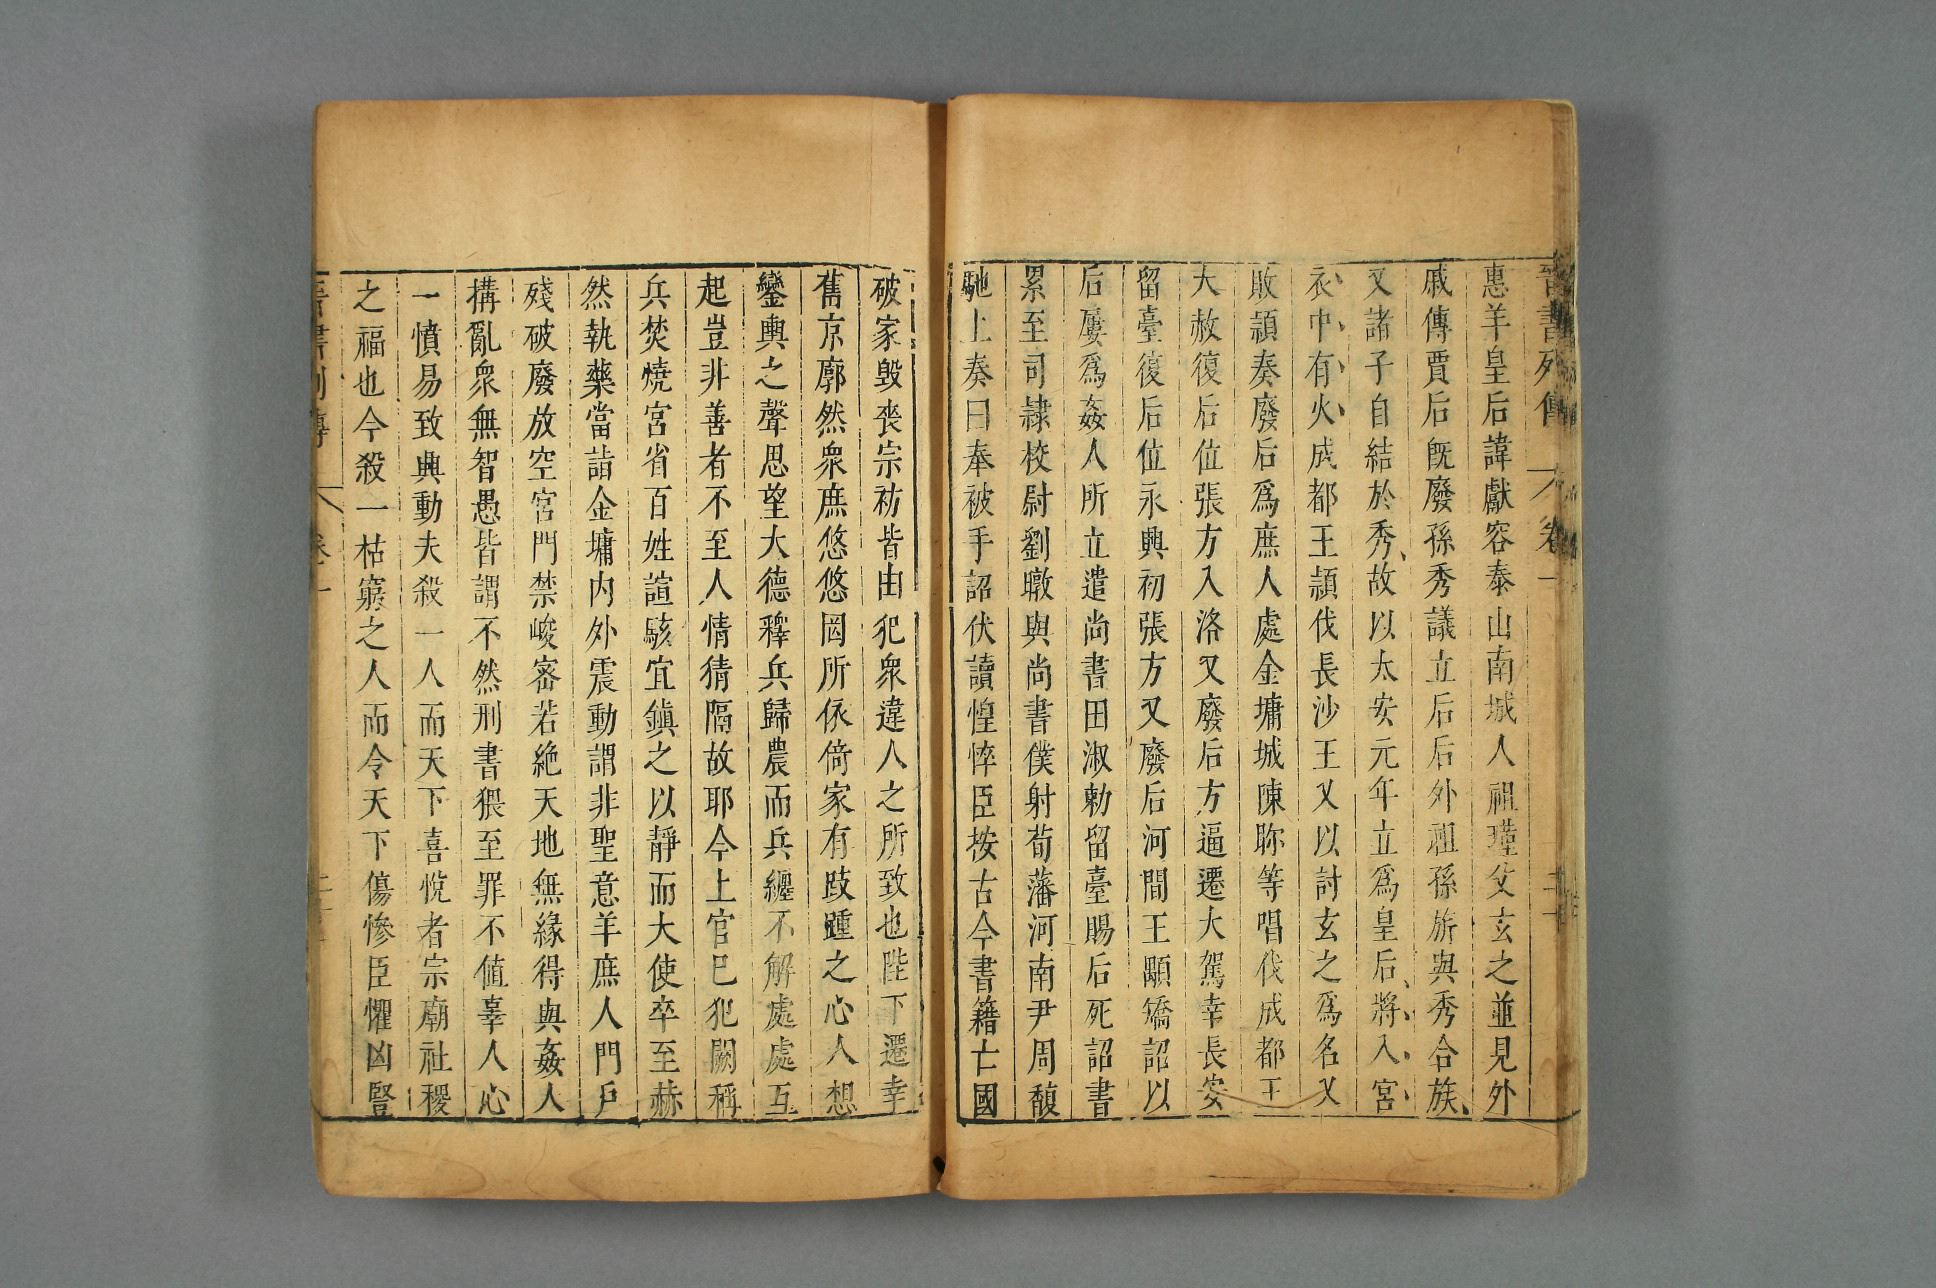 晉書列傳 卷一
惠羊皇后諱獻容泰山南城人祖瑾父玄之並見外
戚傳賈后既廢孫秀議立后后外祖孫旂與秀合族
又諸子自結於秀故以太安元年立爲皇后將入宮
衣中有火成都王穎伐長沙王乂以討玄之爲名乂
敗穎奏廢后爲庶人處金墉城陳眕等唱伐成都王
大赦復后位張方入洛又廢后方逼遷大駕幸長安
留臺復后位永興初張方又廢后河間王顒矯詔以
后屢爲姦人所立遣尚書田淑勅留臺賜后死詔書
累至司隷校尉劉暾與尚書僕射荀藩河南尹周馥
馳上奏曰奉被手詔伏讀惶悴臣按古今書籍亡國
破家毀喪宗祊皆由犯衆違人之所致也陛下遷幸
舊京廓然衆庶悠悠罔所依倚家有跂踵之心人想
鑾輿之聲思望大德釋兵歸農而兵纏不解處處互
起豈非善者不至人情猜隔故耶今上官巳犯闕稱
兵焚燒宮省百姓諠駭宜鎮之以靜而大使卒至赫
然執藥當詣金墉内外震動謂非聖意羊庶人門戶
殘破廢放空宮門禁峻密若絶天地無緣得與姦人
搆亂衆無智愚皆謂不然刑書猥至罪不値辜人心
一憤易致興動夫殺一人而天下喜悅者宗廟社稷
之福也今殺一枯窮之人而令天下傷慘臣懼凶豎
晉書列傳 卷一